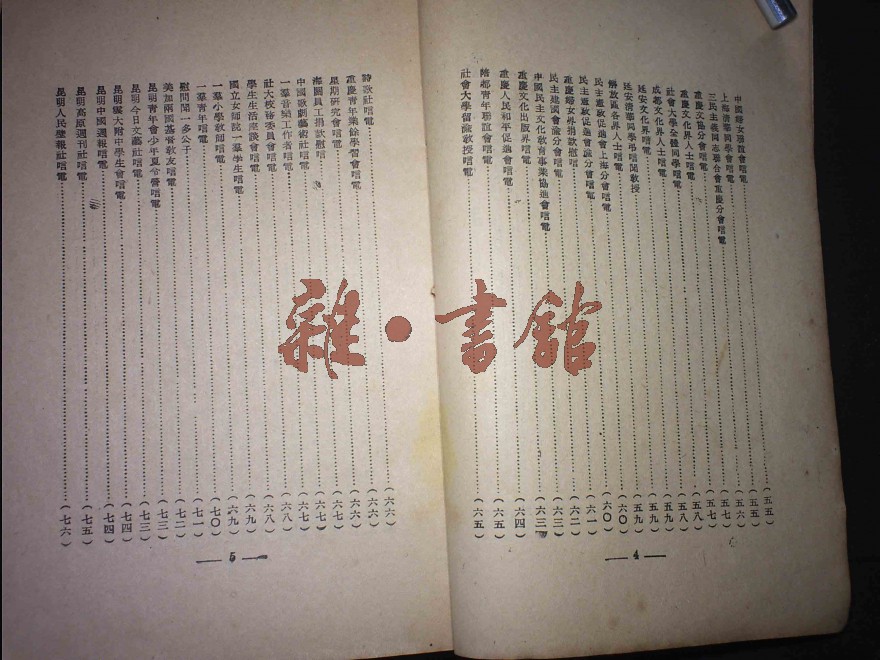 中國婦女聯誼會唁電……(五五)
上海清華同學會唁電……(五五)
三民主義同志聯合會重慶分會唁電……(五六)
重慶文協分會唁電……(五七)
重慶文化界人士唁電……(五八)
社會大學全體同學唁電……(五八)
成都文化界人士唁電……(五九)
延安文化界唁電……(五九)
延安清華同學弔唁聞教授……(六〇)
解放區各界人士唁電……(六〇)
民主憲政促進會上海分會唁電……(六一)
民主憲政促進會渝分會唁電……(六二)
重慶婦女界捐款慰唁……(六二)
民主建國會渝分會唁電……(六三)
中國民主文化教育事業協進會唁電……(六三)
重慶文化出版界唁電……(六四)
重慶人民和平促進會唁電……(六五)
陪都青年聯誼會唁電
社會大學留渝教授唁電……(六五)
— 4 —
詩歌社唁電……(六六)
重慶青年業餘學習會唁電……(六六)
星期研究會唁電……(六六)
海關員工捐款慰唁……(六七)
中國歌劇藝術社唁電……(六七)
一羣音樂工作者唁電……(六八)
社大校務委員會唁電……(六八)
學生生活座談會唁電……(六九)
國立女師院一羣學生唁電……(六九)
一羣小學教師唁電……(七〇)
一羣青年唁電……(七一)
慰問聞一多公子……(七二)
美加兩國基督教友唁電……(七三)
昆明青年會少年夏令營唁電……(七三)
昆明今日文藝社唁電……(七四)
昆明雲大附中學生會唁電……(七四)
昆明中國週報唁電……(七四)
昆明高原週刊社唁電……(七五)
昆明人民壁報社唁電……(七六)
— 5 —
雜·書館